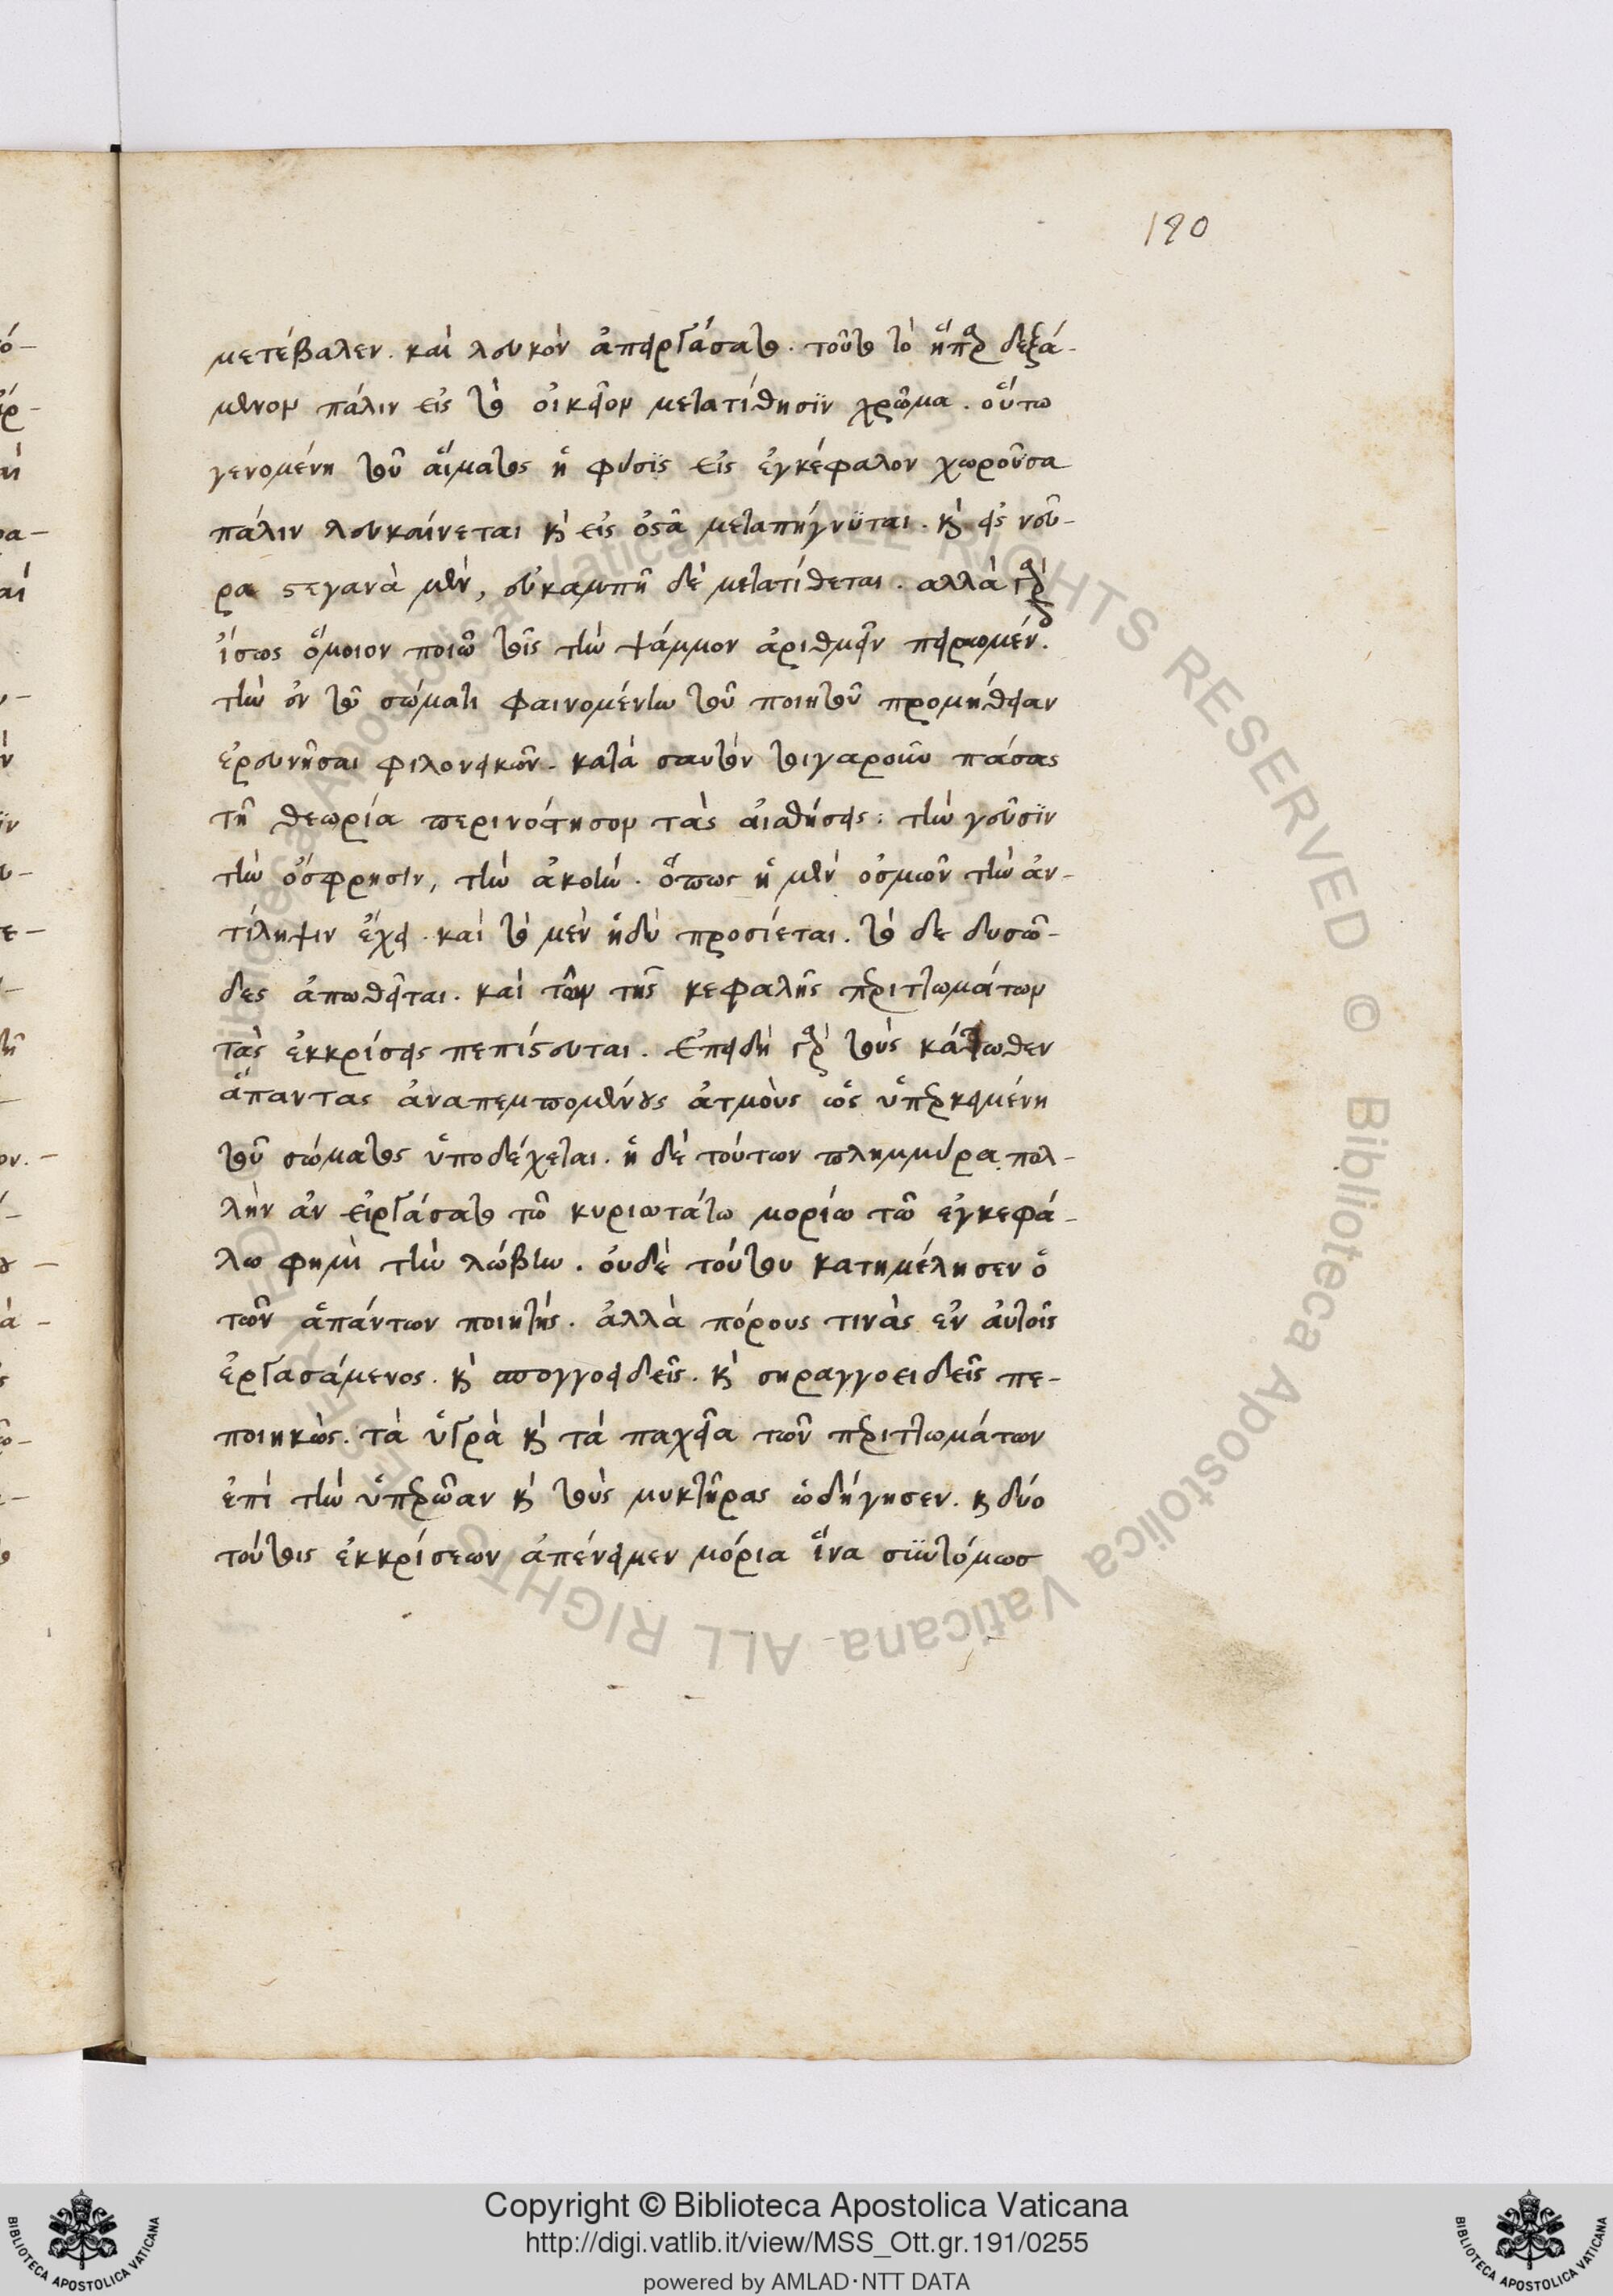 190
μετέβαλεν. καὶ λευκὸν ἀπειργάσατο. τοῦτο τὸ ἧπαρ δεξά-
μενον πάλιν εἰς τὸ οἰκεῖον μετατίθησϊν χρῶμα. οὕτω
γενομένη τοῦ αἵματος ἡ φύσϊς εἰς ἐγκέφαλον χωροῦσα
πάλιν λευκαίνεται κ̀ εἰς ὀστᾶ μεταπήγνϋται. κ̀ εἰς νεῦ-
ρα στεγανὰ μὲν, εὐκαμπῆ δὲ μετατίθεται. αλλὰ γὰρ
ἴσως ὅμοιον ποιῶ τοῖς τὴν ψάμμον ἀριθμεῖν πειρωμέν
τὴν ἐν τῶ σώματι φαινομένην τοῦ ποιητοῦ προμήθειαν
ἐρευνῆσαι φιλονεικῶν. κατὰ σαυτὸν τοιγαροῦν πάσας
τῆ θεωρία περινόστησον τὰς αἰσθήσεις: τὴν γεῦσϊν
τὴν ὄσφρησιν, τὴν ἀκοήν. ὅπως ἡ μὲν ὀσμῶν τὴν ἀν-
τίληψιν ἔχει. καὶ τὸ μὲν ἡδὺ προσίεται. τὸ δε δυσῶ-
δες ἀπωθεῖται. καὶ τῶν τῆς κεφαλῆς περιττωμάτων
τὰς ἐκκρίσεις πεπίστευται. Ἐπειδὴ γὰρ τοὺς κάτωθεν
ἅπαντας ἀναπεμπομένους ἀτμοὺς ὡς ὑπερκειμένη
τοῦ σώματος ὑποδέχεται. ἡ δὲ τούτων πλημμύρα πολ-
λὴν ἀν εἰργάσατο τῶ κυριωτάτω μορίω τῶ ἐγκεφά-
λω φημὶ τὴν λώβην. οὐδὲ τούτου κατημέλησεν ὁ
τῶν ἁπάντων ποιητής. ἀλλὰ πόρους τινὰς ἐν αὐτοῖς
ἐργασάμενος. κ̀ σπογγοειδεῖς. κ̀ σηραγγοειδεῖς πε-
ποιηκὼς. τὰ ὑγρὰ κ̀ τὰ παχεῖα τῶν περιττωμάτων
ἐπὶ τὴν ὑπερῶαν κ̀ τοὺς μυκτῆρας ὡδήγησεν. κ̀ δύο
τούτοις ἐκκρίσεων ἀπένειμεν μόρια ἵνα σϋντόμωσ
Copyright © Biblioteca Apostolica Vaticana
http://digi.vatlib.it/view/MSS_Ott.gr.191/0255
powered by AMLAD·NTT DATA